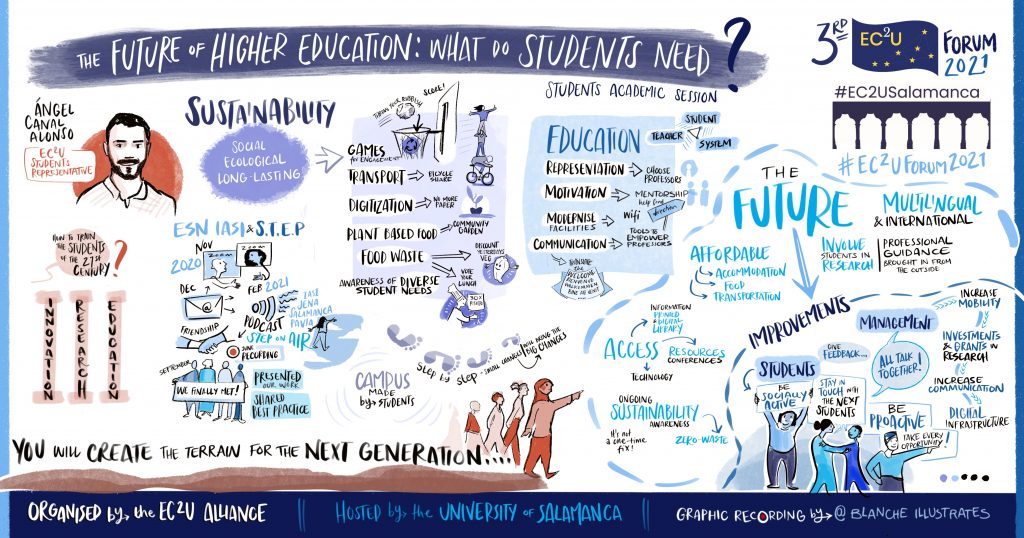 THE FUTURE OF HIGHER EDUCATION: WHAT DO STUDENTS NEED?
STUDENTS ACADEMIC SESSION
3RD
EC2U
FORUM
2021
#EC2USalamanca
#EC2UFORUM2021
ÁNGEL
CANAL
ALONSO
EC2U
STUDENTS
REPRESENTATIVE
HOW TO TRAIN
THE STUDENTS
OF THE 21ST
CENTURY?
INNOVATION
RESEARCH
EDUCATION
SUSTAINABILITY
SOCIAL
ECOLOGICAL
LONG-LASTING
ESN IASI & S.T.E.P
NOV
2020
ZOOM
ZOOM
DEC
FEB 2021
PODCAST
IASI
JENA
SALAMANCA
PAVIA
STEP ON
AIR
FRIENDSHIP
JUNE
RECORDING
SEPTEMBER
WE FINALLY MET!
PRESENTED
OUR WORK
SHARED
BEST PRACTICE
YOUR RUBBISH
SCORE!
GAMES
FOR ENGAGEMENT
TRANSPORT
BICYCLE
SHARE
DIGITIZATION
NO MORE
PAPER
PLANT BASED FOOD
COMMUNITY
GARDEN
FOOD WASTE
DISCOUNT
YESTERDAYS
VEG
AWARENESS OF DIVERSE
STUDENT NEEDS
VOTE
YOUR
LUNCH
CAMPUS
MADE
by STUDENTS
STEP by STEP - SMALL
CHANGES WILL BRING THE
BIG CHANGES
EDUCATION
STUDENT
TEACHER
SYSTEM
REPRESENTATION
CHOOSE
PROFESSORS
MOTIVATION
MENTORSHIP
help find
direction
MODERNISE
FACILITIES
Wifi
TOOLS to
EMPOWER
PROFESSORS
COMMUNICATION
WELCOME
THE
FUTURE
MULTILINGUAL
& INTERNATIONAL
INVOLVE
STUDENTS IN
RESEARCH
PROFESSIONAL
GUIDANCE
BROUGHT IN FROM
THE OUTSIDE
AFFORDABLE
ACCOMMODATION
FOOD
TRANSPORTATION
INFORMATION
PRINTED
& DIGITAL
LIBRARY
ACCESS
RESOURCES
CONFERENCES
TECHNOLOGY
ONGOING
SUSTAINABILITY
AWARENESS
It's not
a one-time
fix!
ZERO-WASTE
IMPROVEMENTS
STUDENTS
GIVE
FEEDBACK...
BE
SOCIALLY
ACTIVE
STAY IN
TOUCH WITH
THE NEXT
STUDENTS
MANAGEMENT
ALL TALK
TOGETHER!
BE
PROACTIVE
TAKE EVERY
OPPORTUNITY!
INCREASE
MOBILITY
INVESTMENTS
& GRANTS IN
RESEARCH
INCREASE
COMMUNICATION
DIGITAL
INFRASTRUCTURE
YOU WILL CREATE THE TERRAIN FOR THE NEXT GENERATION....
ORGANISED by the EC2U ALLIANCE
HOSTED by the UNIVERSITY of SALAMANCA
GRAPHIC RECORDING by @ BLANCHE ILLUSTRATES